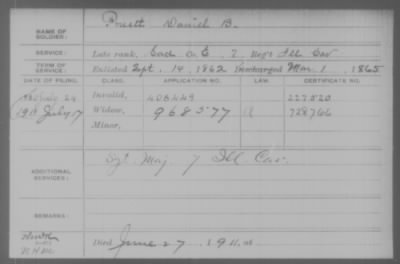 NAME OF SOLDIER: Pruett Daniel B.
SERVICE: Late rank, Co. E, 7 Reg't Ill Cav
TERM OF SERVICE: Enlisted Sept. 14, 1862 Discharged Mar. 1, 1865
DATE OF FILING. CLASS. APPLICATION NO. LAW. CERTIFICATE NO.
24 Invalid, 408449 227.520
July 17 Widow, 968577 728766
Minor,
ADDITIONAL SERVICES: Sgt Maj 7 Ill Cav.
REMARKS:
Died June 27, 1911, at